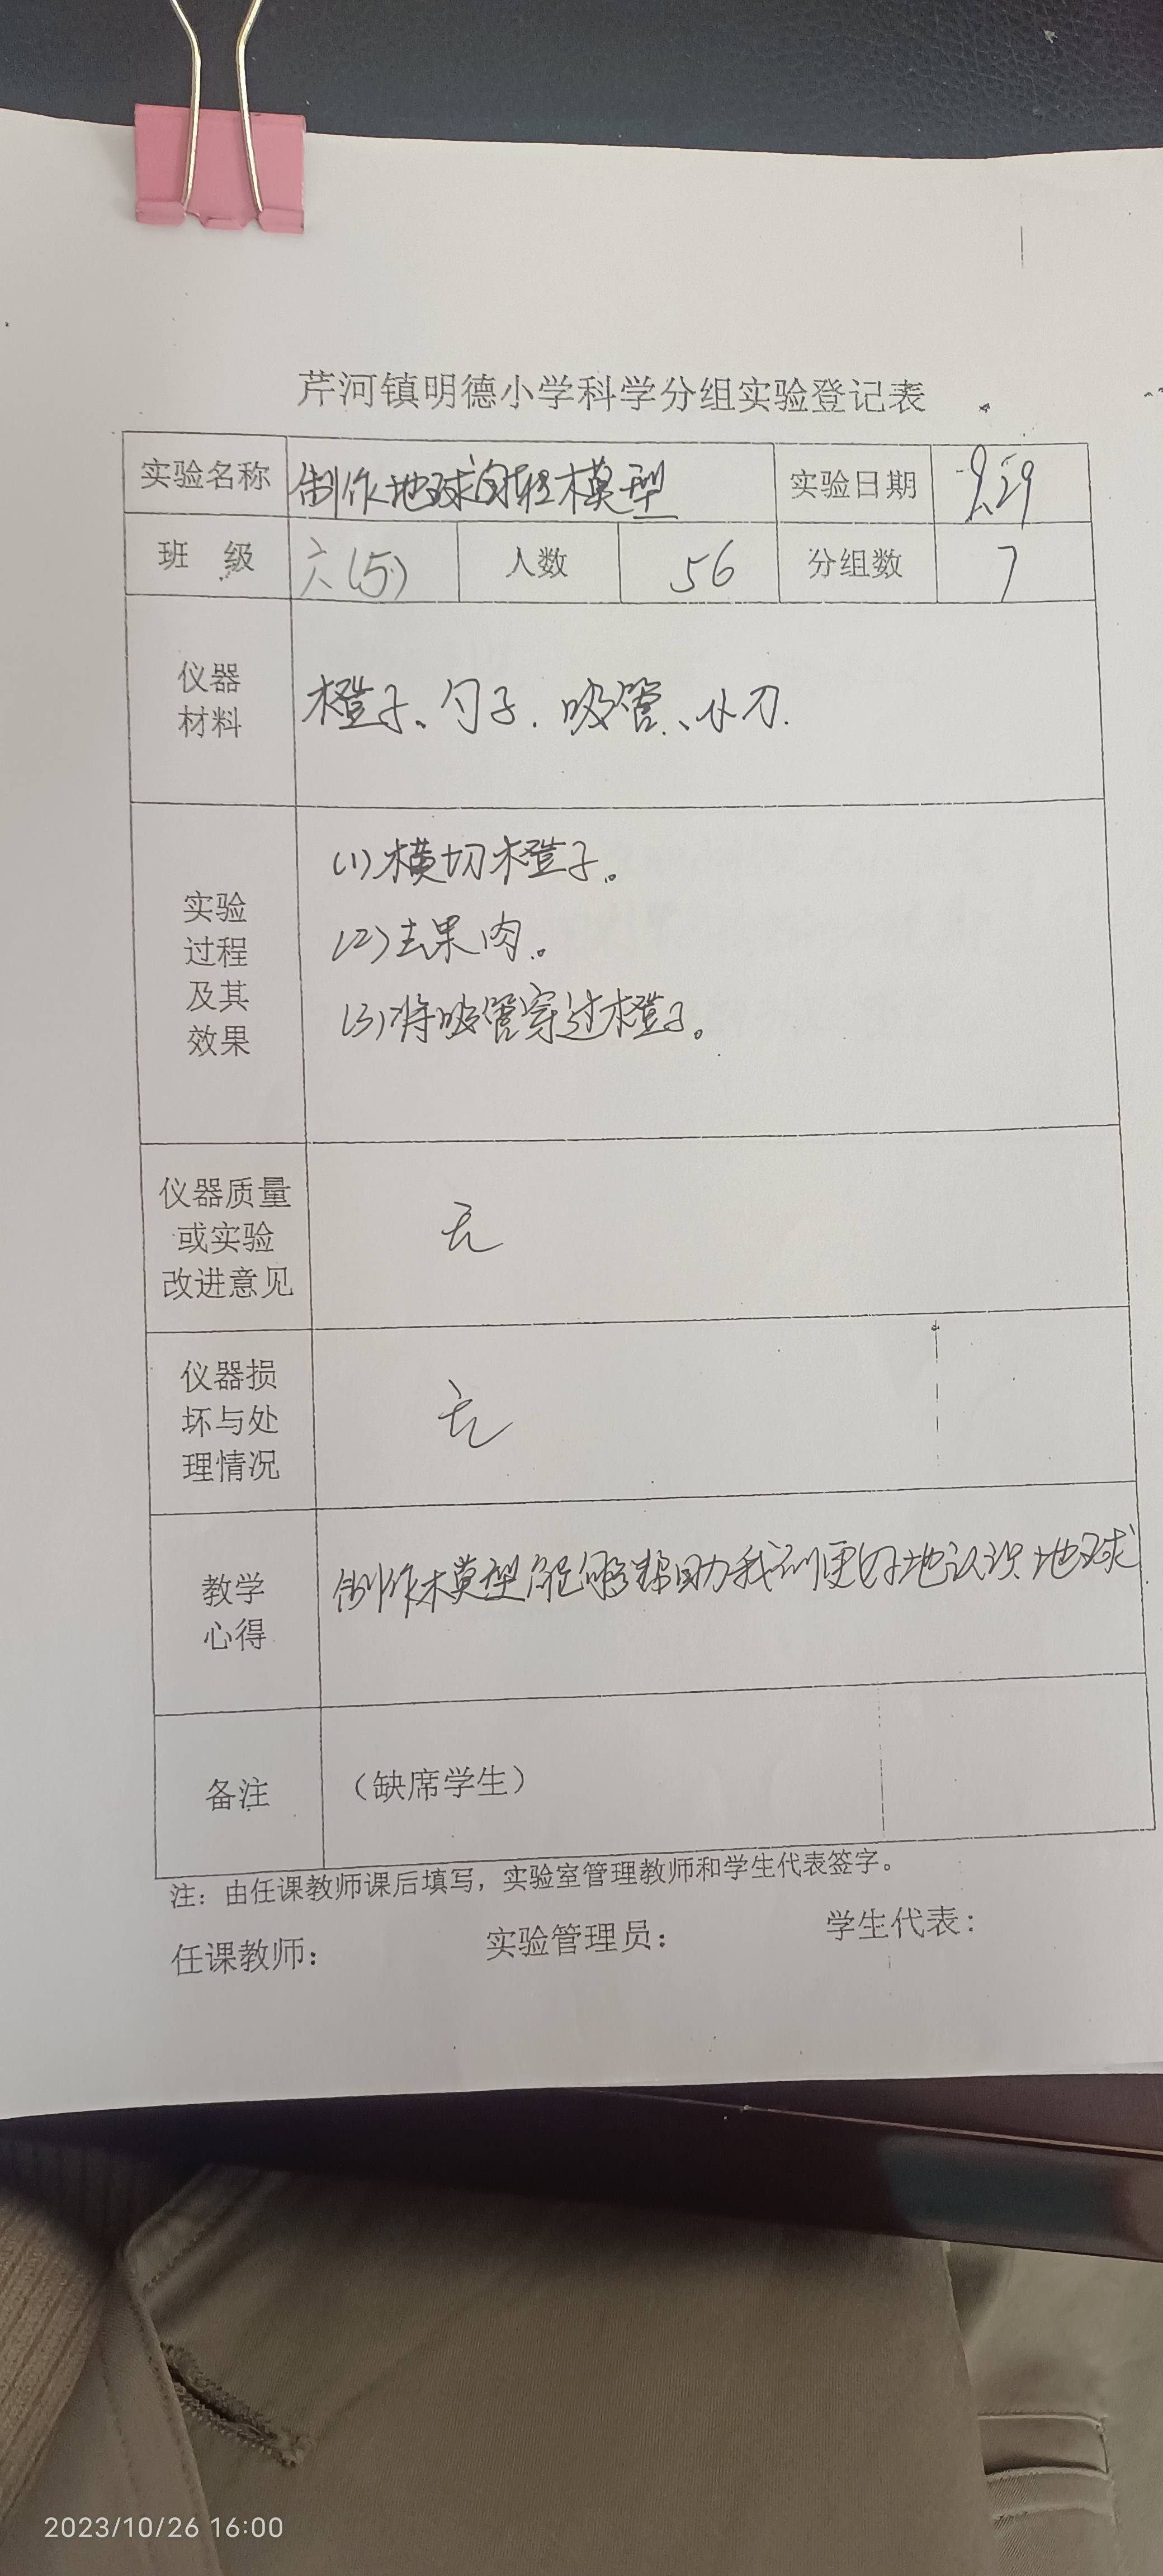 芹河镇明德小学科学分组实验登记表
实验名称 制作地球自转模型 实验日期 9.29
班 级 六(5) 人数 56 分组数 7
仪器
材料
橙子、勺子、吸管、小刀.
实验
过程
及其
效果
(1)横切橙子。
(2)去果肉。
(3)将吸管穿过橙子。
仪器质量
或实验
改进意见
无
仪器损
坏与处
理情况
无
教学
心得
制作模型能够帮助我们更好地认识地球
备注 （缺席学生）
注：由任课教师课后填写，实验室管理教师和学生代表签字。
任课教师： 实验管理员： 学生代表：
2023/10/26 16:00